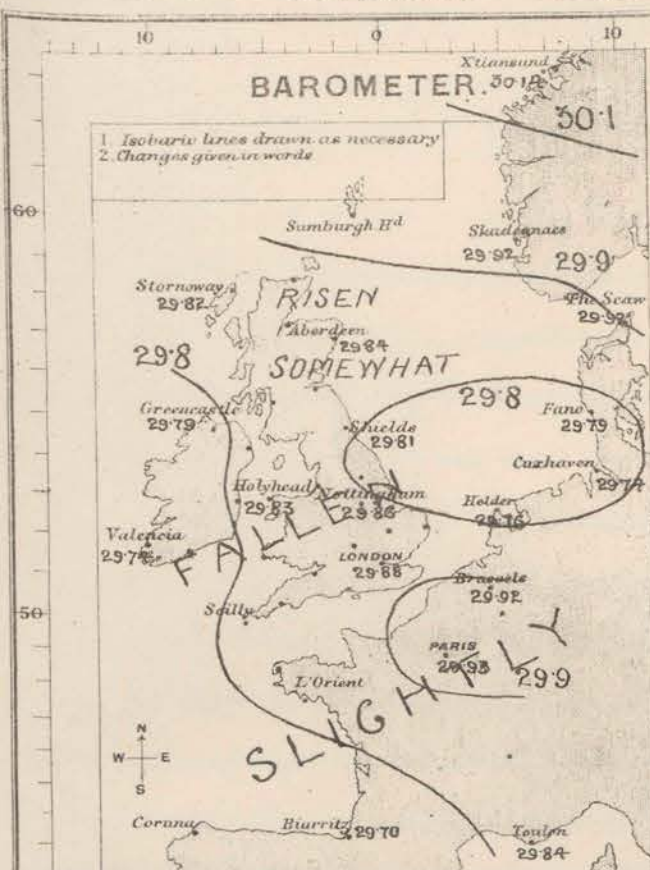 10 0 10
BAROMETER.
Xtiansund
30·1
1 Isobaric lines drawn as necessary
2 Changes given in words
60
Sumburgh Hd
Skudesnaes
29·92
29·9
Stornoway
29·82
RISEN
The Scaw
29·92
Aberdeen
29·84
29·8
SOMEWHAT
29·8
Greencastle
29·79
Shields
29·81
Fano
29·79
Cuxhaven
Holyhead
29·83
Nottingham
29·86
Helder
29·76
Valencia
FALLEN
LONDON
29·88
Brussels
29·92
50
Scilly
PARIS
29·93
29·9
L'Orient
SLIGHTLY
N
W E
S
Coruna
Biarritz 29·70
Toulon
29·84